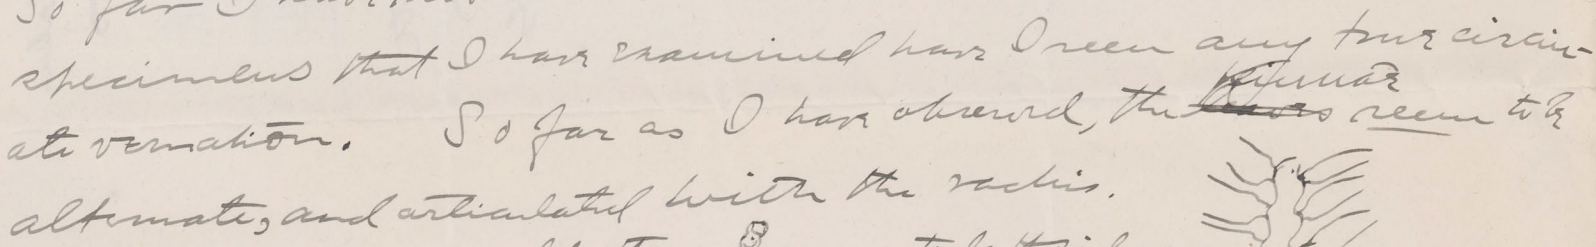 So far I
specimens that I have examined have I seen any true circin-
ate vernation. So far as I have observed, the pinnae seem to be
alternate, and articulated with the rachis.